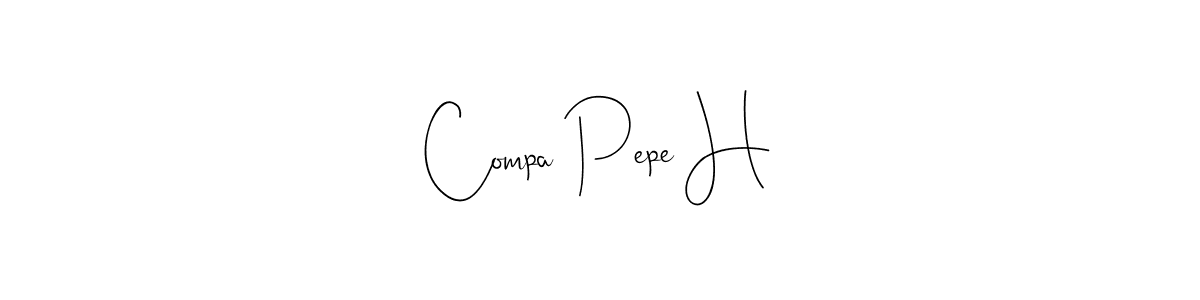 Compa Pepe H